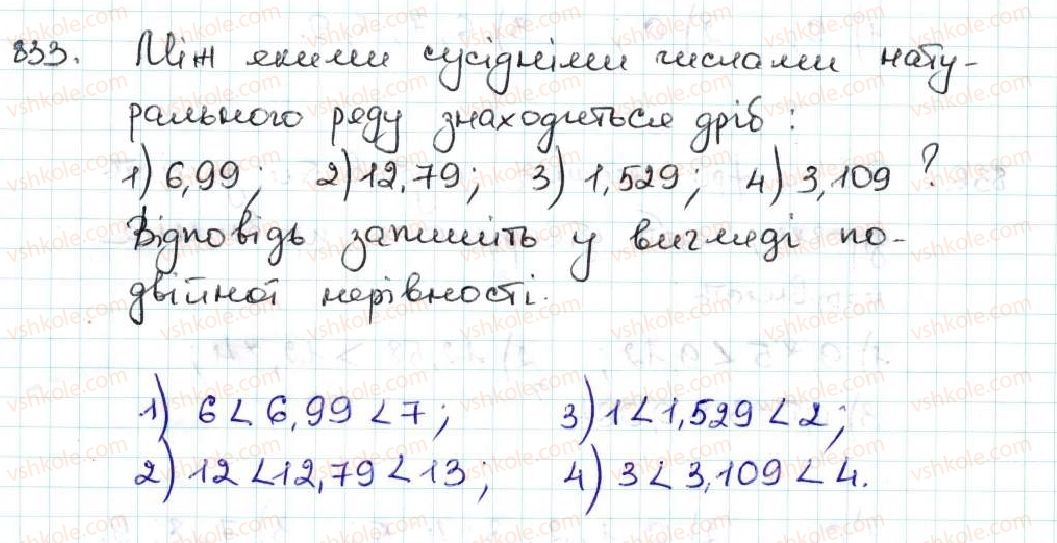 833. Між якими сусідніми числами нату-
рального ряду знаходиться дріб:
1) 6,99; 2) 12,79; 3) 1,529; 4) 3,109 ?
Відповідь запишіть у вигляді по-
двійної нерівності.
1) 6 < 6,99 < 7; 3) 1 < 1,529 < 2;
2) 12 < 12,79 < 13; 4) 3 < 3,109 < 4.